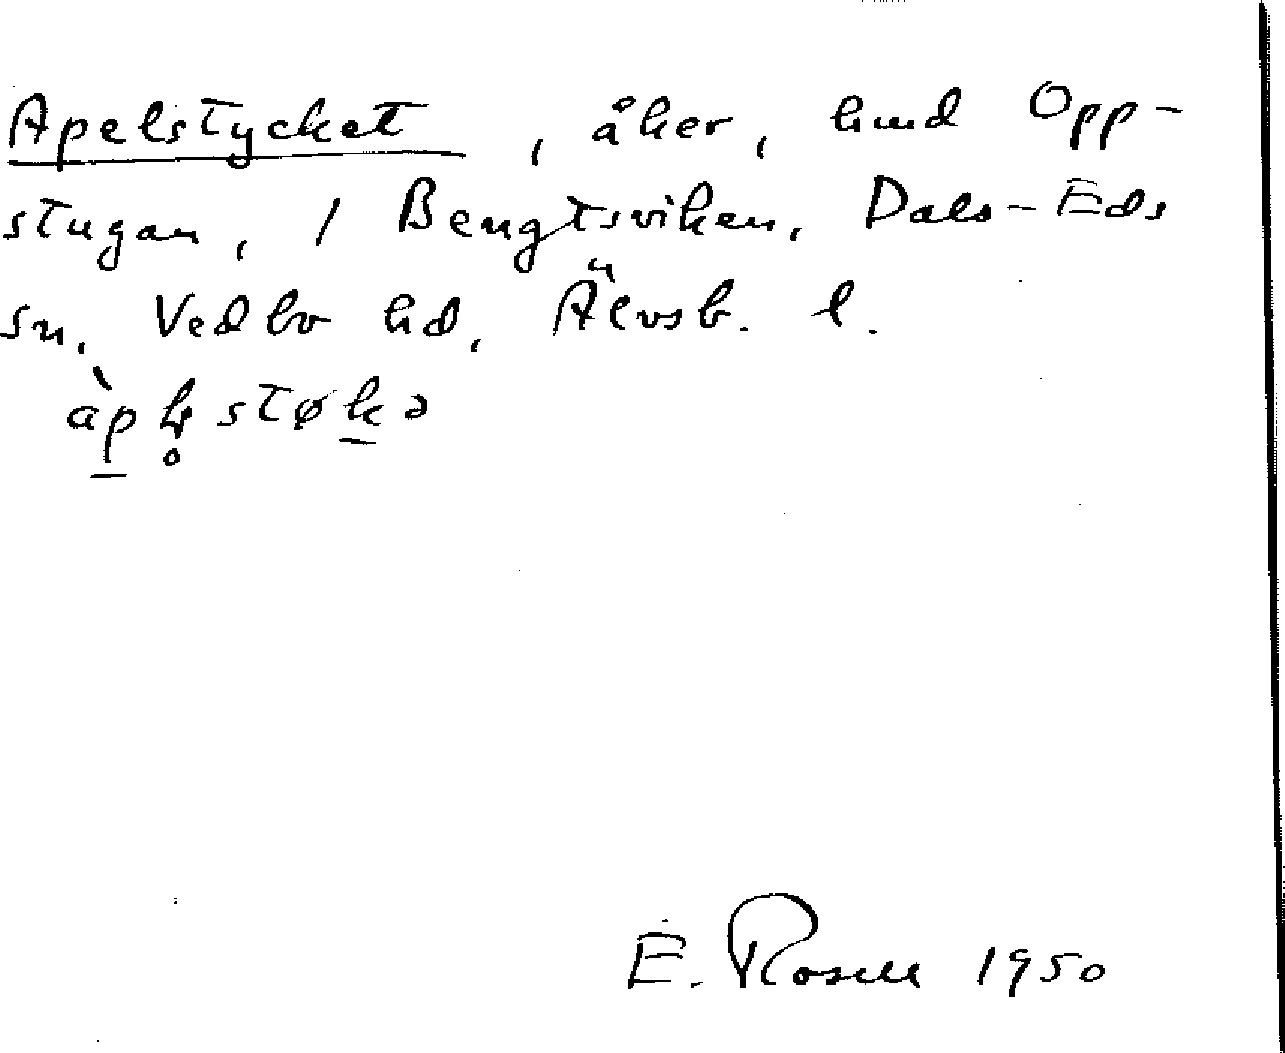 Apelstycket, åker, hmd Opp-
stugan, 1 Bengtsviken, Dals-Eds
sn, Vedbo hd, Älvsb. l.
E. Rosell 1950